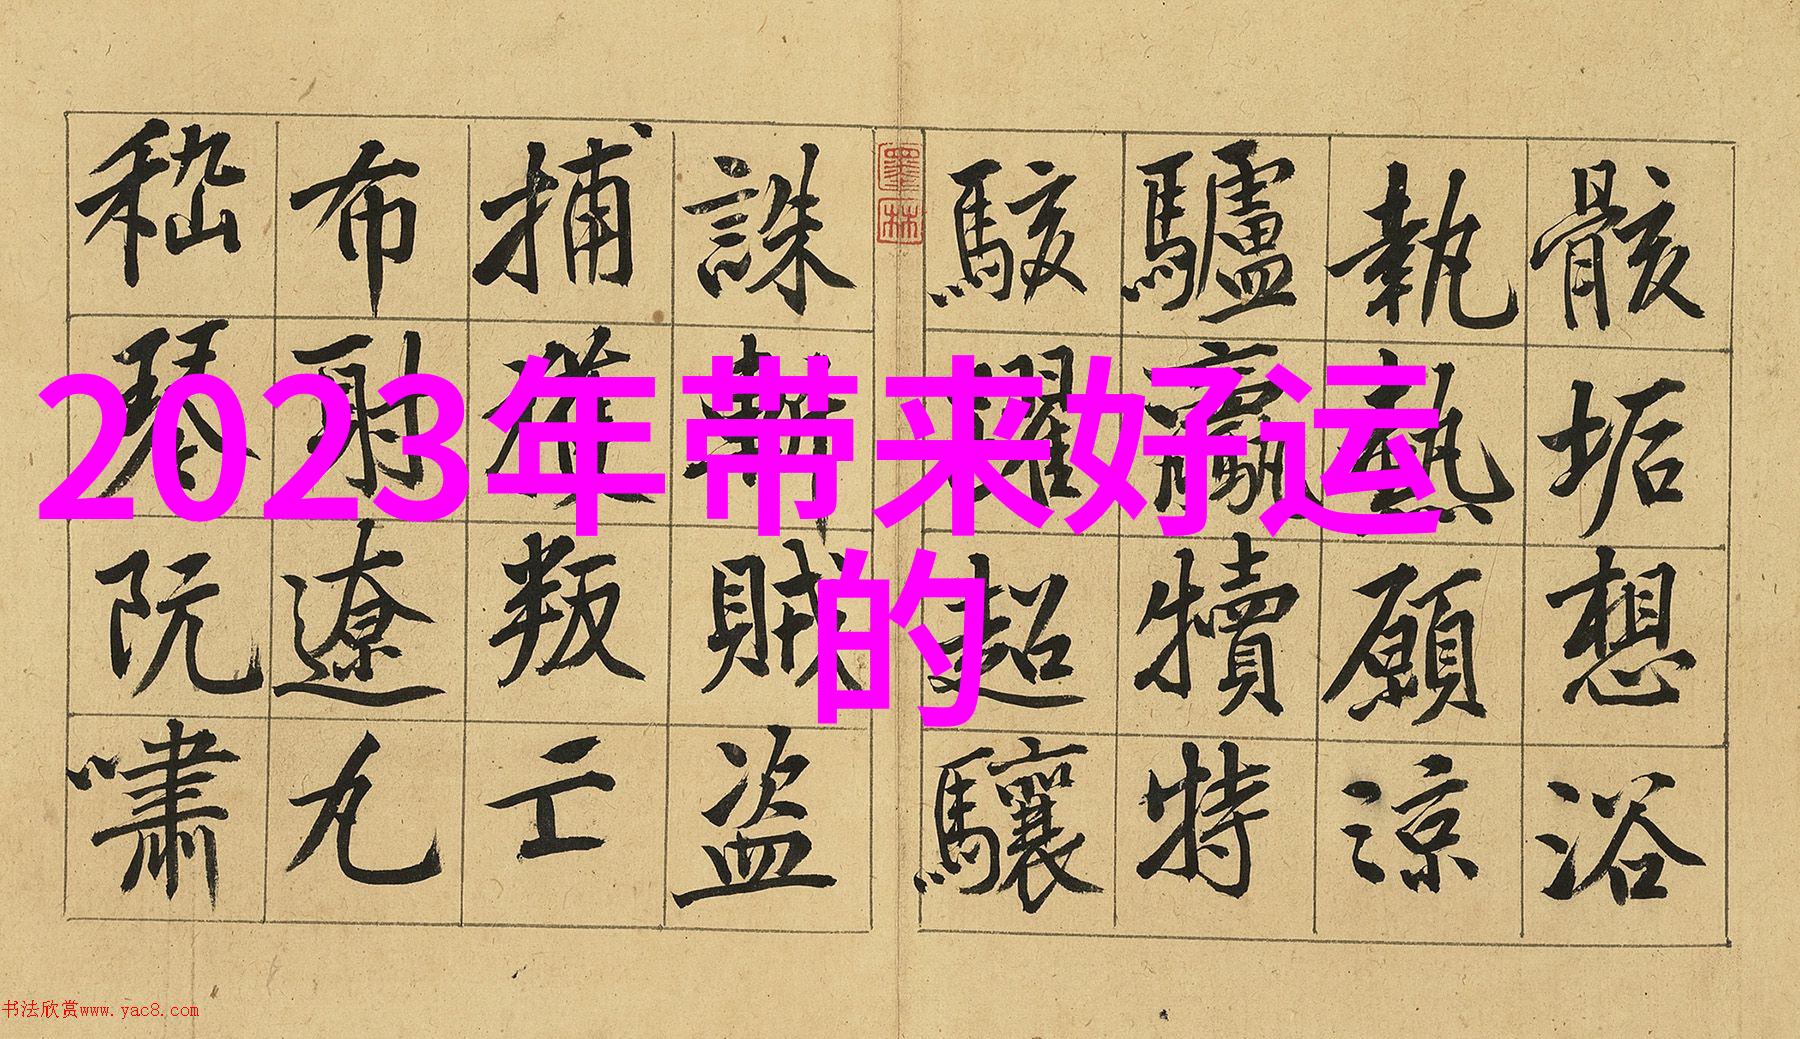 2023年带来好运
的
骸垢想浴
執熱願涼
驢犢特
駭躍超驤
墨林
誅斬賊盜
捕獲叛亡
布射遼丸
嵇琴阮嘯
书法欣赏www.yac8.com